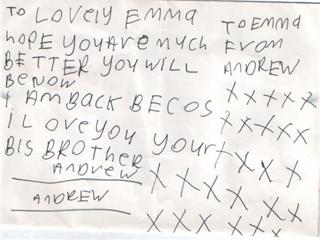 TO LOVELY EMMA
hOPE YOU ARE MUCh
BETTER YOU WILL
BENOW
I AM BACK BECOS
iLOVEYOU YOUR
BIS BROTHER
ANDREW
ANDREW
TO EMMA
FROM
ANDREW
X X X X X
X X X X X
X X X X
X X X X X X
X X X X X X